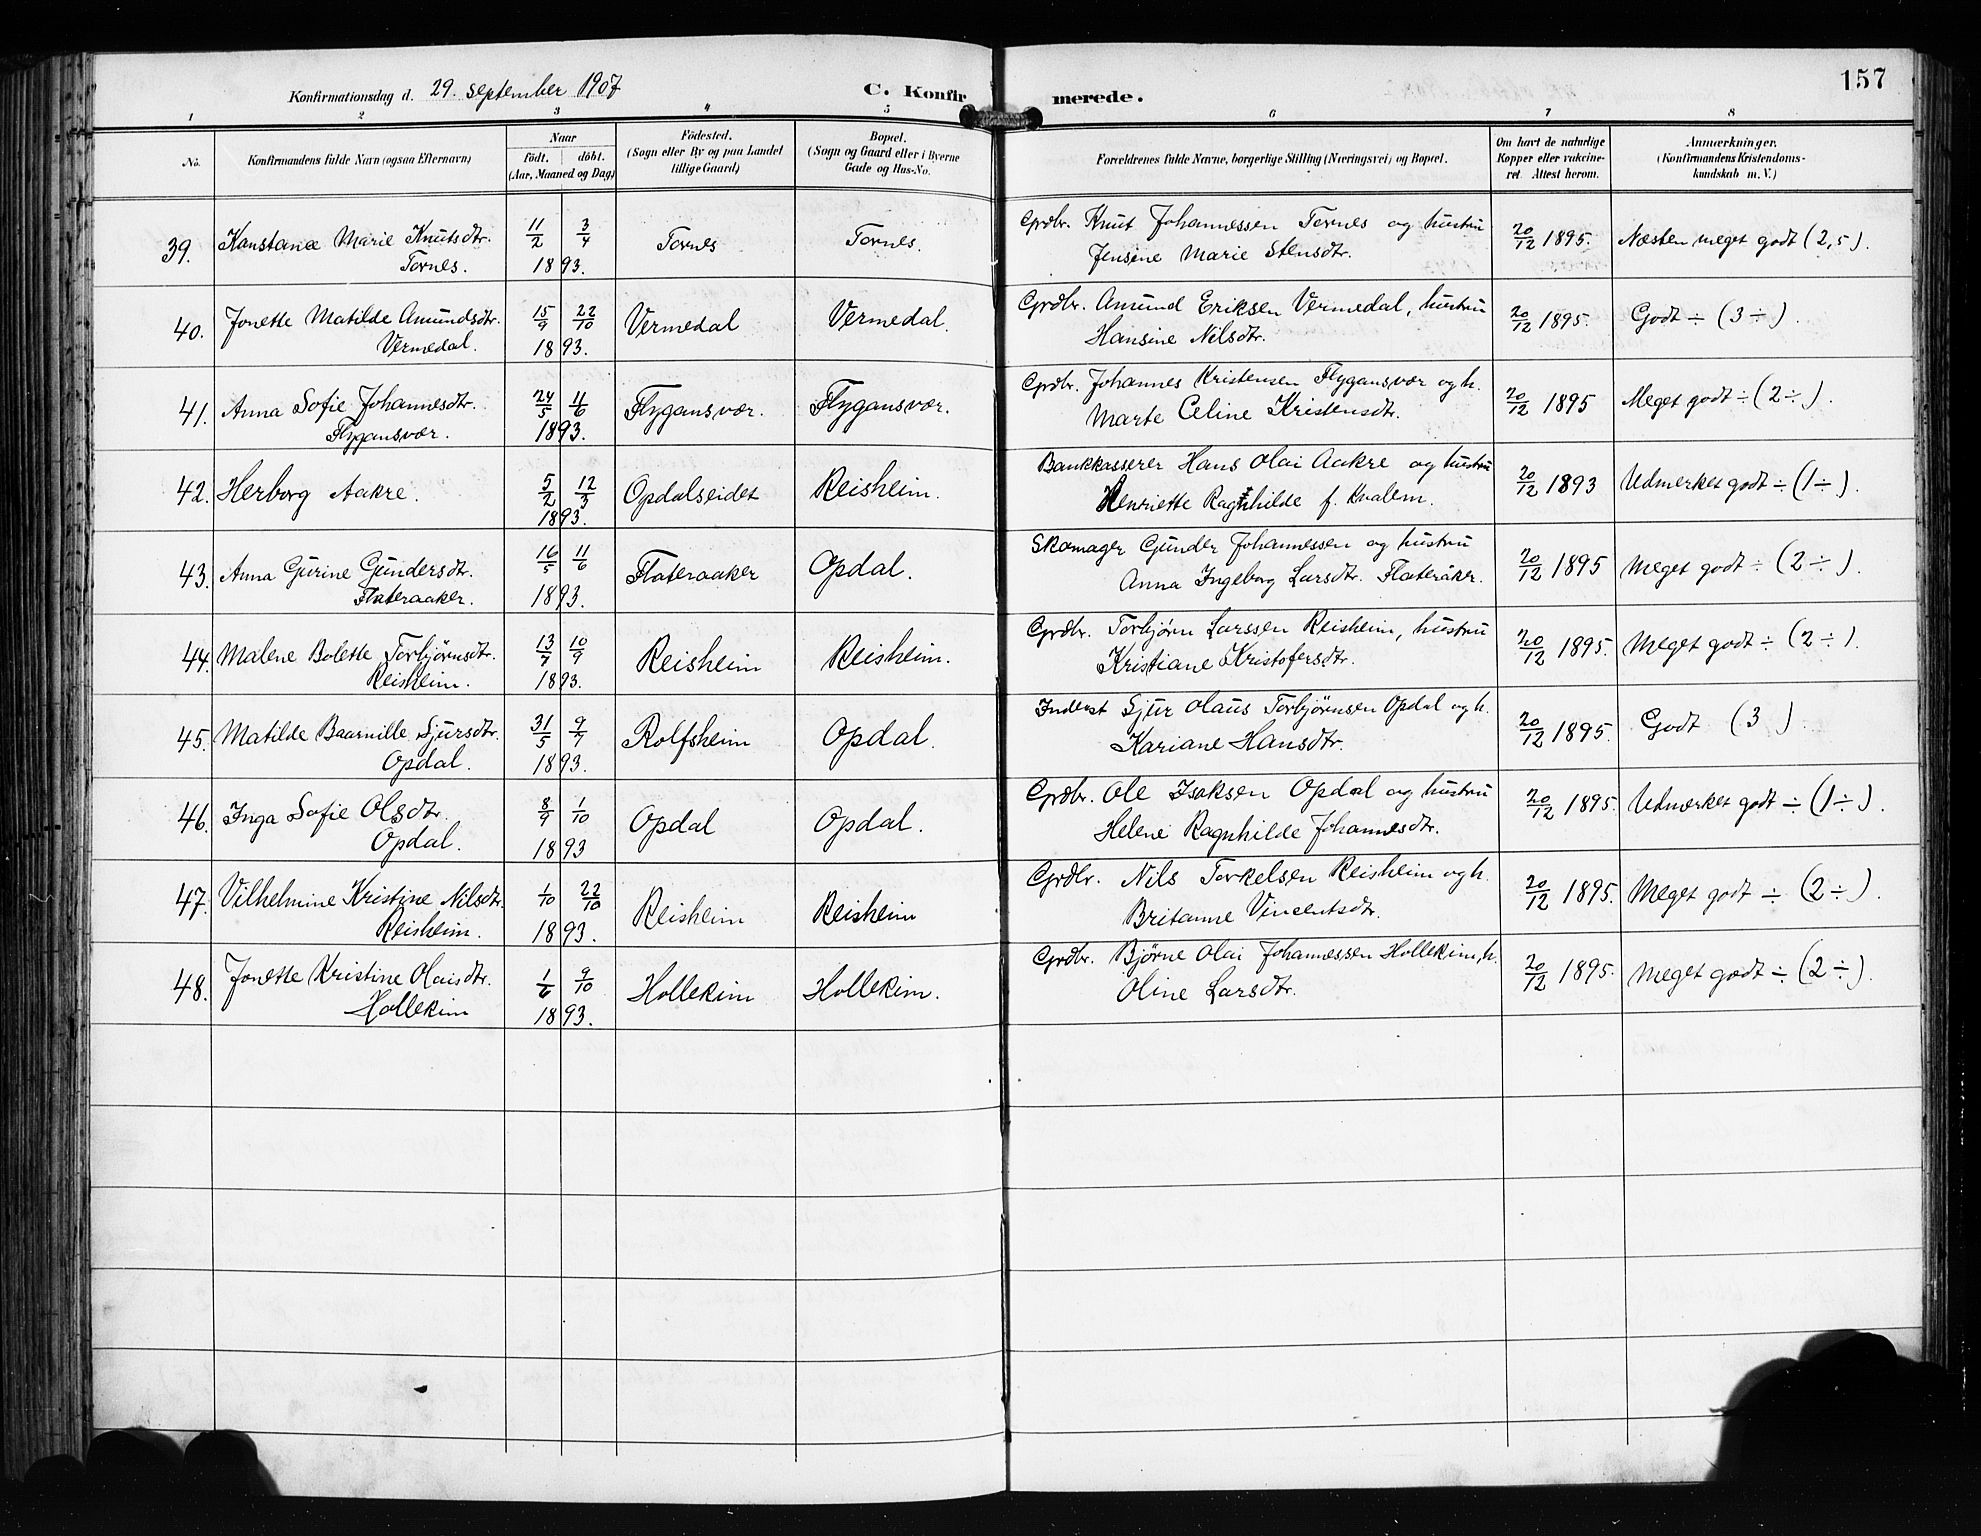 157
Konfirmationsdag d. 29. september 1907 C. Konfirmerede.
1 2 3 4 5 6 7 8
No. Konfirmandens fulde Navn (ogsaa Efternavn) Naar födt. döbt. (Aar, Maaned og Dag) Födested. (Sogn eller By og paa Landet tillige Gaard) Bopæl. (Sogn og Gaard eller i Byerne Gade og Hus-No. Forældrenes fulde Navne, borgerlige Stilling (Næringsvei) og Bopæl. Om havt de naturlige Kopper eller vakcineret. Attest herom. Anmærkninger. (Konfirmandens Kristendomskundskab m. V.)
39. Konstanse Marie Knutsdtr. 11/2 3/4 Tornes Tornes. Grdbr. Knut Johannessen Tornes og hustru 20/12 1895. Næsten meget godt (2,5).
Tornes. 1893. Jensine Marie Stensdtr.
40. Jonette Matilde Amundsdtr. 15/9 22/10 Vermedal Vermedal. Grdbr. Amund Eriksen Vermedal, hustru 20/12 1895. Godt ÷ (3 ÷).
Vermedal. 1893. Hansine Nilsdtr.
41. Anna Sofie Johannesdtr. 24/5 11/6 Flygansvær. Flygansvær. Grdbr. Johannes Kristensen Flygansvær og h. 20/12 1895 Meget godt ÷ (2 ÷).
Flygansvær. 1893. Marte Celine Kristensdtr.
42. Herborg Aakre. 5/2 12/3 Opdalseidet Reisheim. Bankkasserer Hans Olai Aakre og hustru 20/12 1893 Udmerket godt ÷ (1 ÷).
1893. Henriette Ragnhilde f. Kvalem.
43. Anna Gurine Gundersdtr. 16/5 11/6 Flateraaker Opdal. Skomager Gunder Johannessen og hustru 20/12 1895 Meget godt ÷ (2 ÷).
Flateraaker. 1893. Anna Ingeborg Larsdtr. Flateråker.
44. Malene Bolette Torbjörnsdtr. 13/7 10/9 Reisheim Reisheim. Grdbr. Torbjørn Larssen Reisheim, hustru 20/12 1895. Meget godt ÷ (2 ÷).
Reisheim. 1893. Kristiane Kristofersdtr.
45. Matilde Baarnille Sjursdtr. 31/5 9/7 Rolfsheim Opdal. Inderst Sjur Olaus Torbjörnsen Opdal og h. 20/12 1895. Godt (3).
Opdal. 1893. Kariane Hansdtr.
46. Inga Sofie Olsdtr. 8/9 1/10 Opdal Opdal. Grdbr. Ole Isaksen Opdal og hustru 20/12 1895. Udmerket godt ÷ (1 ÷).
Opdal. 1893 Helene Ragnhilde Johannesdtr.
47. Vilhelmine Kristine Nilsdtr. 1/10 22/10 Reisheim Reisheim Grdbr. Nils Torkelsen Reisheim og h. 20/12 1895. Meget godt ÷ (2 ÷).
Reisheim. 1893. Britanne Vincentsdtr.
48. Jonette Kristine Olaisdtr. 1/6 9/10 Hollekim Hollekim. Grdbr. Bjørne Olai Johannessen Hollekim, h. 20/12 1895. Meget godt ÷ (2 ÷).
Hollekim 1893. Oline Larsdtr.